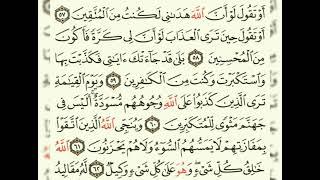 أَوْ تَقُولَ لَوْ أَنَّ ٱللَّهَ هَدَىٰنِي لَكُنتُ مِنَ ٱلْمُتَّقِينَ ٥٧
أَوْ تَقُولَ حِينَ تَرَى ٱلْعَذَابَ لَوْ أَنَّ لِي كَرَّةً فَأَكُونَ
مِنَ ٱلْمُحْسِنِينَ ٥٨ بَلَىٰ قَدْ جَآءَتْكَ ءَايَٰتِي فَكَذَّبْتَ بِهَا
وَٱسْتَكْبَرْتَ وَكُنتَ مِنَ ٱلْكَٰفِرِينَ ٥٩ وَيَوْمَ ٱلْقِيَٰمَةِ
تَرَى ٱلَّذِينَ كَذَبُوا۟ عَلَى ٱللَّهِ وُجُوهُهُم مُّسْوَدَّةٌ أَلَيْسَ فِي
جَهَنَّمَ مَثْوًى لِّلْمُتَكَبِّرِينَ ٦٠ وَيُنَجِّي ٱللَّهُ ٱلَّذِينَ ٱتَّقَوْا۟
بِمَفَازَتِهِمْ لَا يَمَسُّهُمُ ٱلسُّوٓءُ وَلَا هُمْ يَحْزَنُونَ ٦١ ٱللَّهُ
خَٰلِقُ كُلِّ شَيْءٍ وَهُوَ عَلَىٰ كُلِّ شَيْءٍ وَكِيلٌ ٦٢ لَّهُۥ مَقَالِيدُ